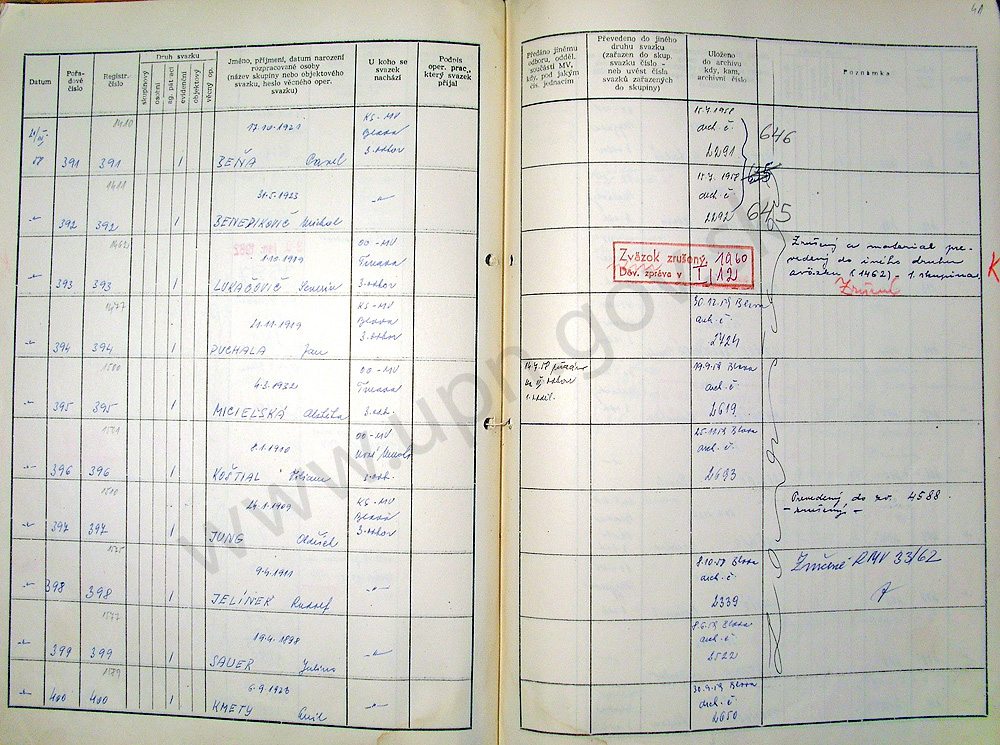 40
Datum
Pořa-
dové
číslo
Registr.
číslo
Druh svazku
skupinový
osobní
ag. pát. ací
evidenční
objektový
věcný op.
Jméno, příjmení, datum narození
rozpracované osoby
(název skupiny nebo objektového
svazku, heslo věcného oper.
svazku)
U koho se
svazek
nachází
Podpis
oper. prac.,
který svazek
přijal
Předáno jinému
odboru, odděl.
součásti MV,
kdy, pod jakým
čís. jednacím
Převedeno do jiného
druhu svazku
(zařazen do skup.
svazku číslo -
neb uvést čísla
svazků zařazených
do skupiny)
Uloženo
do archivu
kdy, kam,
archivní číslo
Poznámka
1410
17.10.1921
KS-MV
Blava
3. odbor
391 391 1 BEŇA Pavel
15.7.1958
arch. č.
2291
646
1411
31.5.1923
392 392 1 BENEDIKOVIČ Michal
15.7.1958
arch. č.
2292
645
1462
1.10.1919
OO-MV
Trnava
3. odbor
393 393 1 LUKAČOVIČ Severin
Zväzok zrušený, 1960
Dov. zpráva v I/12
Zrušený a materiál pre-
vedený do iného druhu
sväzku (1462) - 1. skupina.
Zrušené
K
1477
21.11.1919
KS-MV
Blava
3. odbor
394 394 1 PUCHALA Jan
30.12.1958 Blava
arch. č.
2424
1500
4.3.1932
OO-MV
Trnava
3. odb.
395 395 1 MICIELSKÁ Alžbeta
1. odděl.
19.9.1959 Blava
arch. č.
2619
8.1.1910
OO-MV
3. odb.
396 396 1 KOŠTIAL Viliam
25.11.59 Blava
arch. č.
2693
1510
24.1.1909
KS-MV
Blava
3. odbor
397 397 1 JUNG Oldřich
Prevedený do zv. 4588.
- zrušený -
1525
9.4.1911
398 398 1 JELÍNEK Rudolf
8.10.58 Blava
arch. č.
2339
Zničené RMV 33/62
1547
19.4.1898
399 399 1 SAUER Julius
8.6.59 Blava
arch. č.
2522
1579
6.9.1923
400 400 1 KMETY Emil
30.9.59 Blava
arch. č.
2650
www.upn.gov.sk